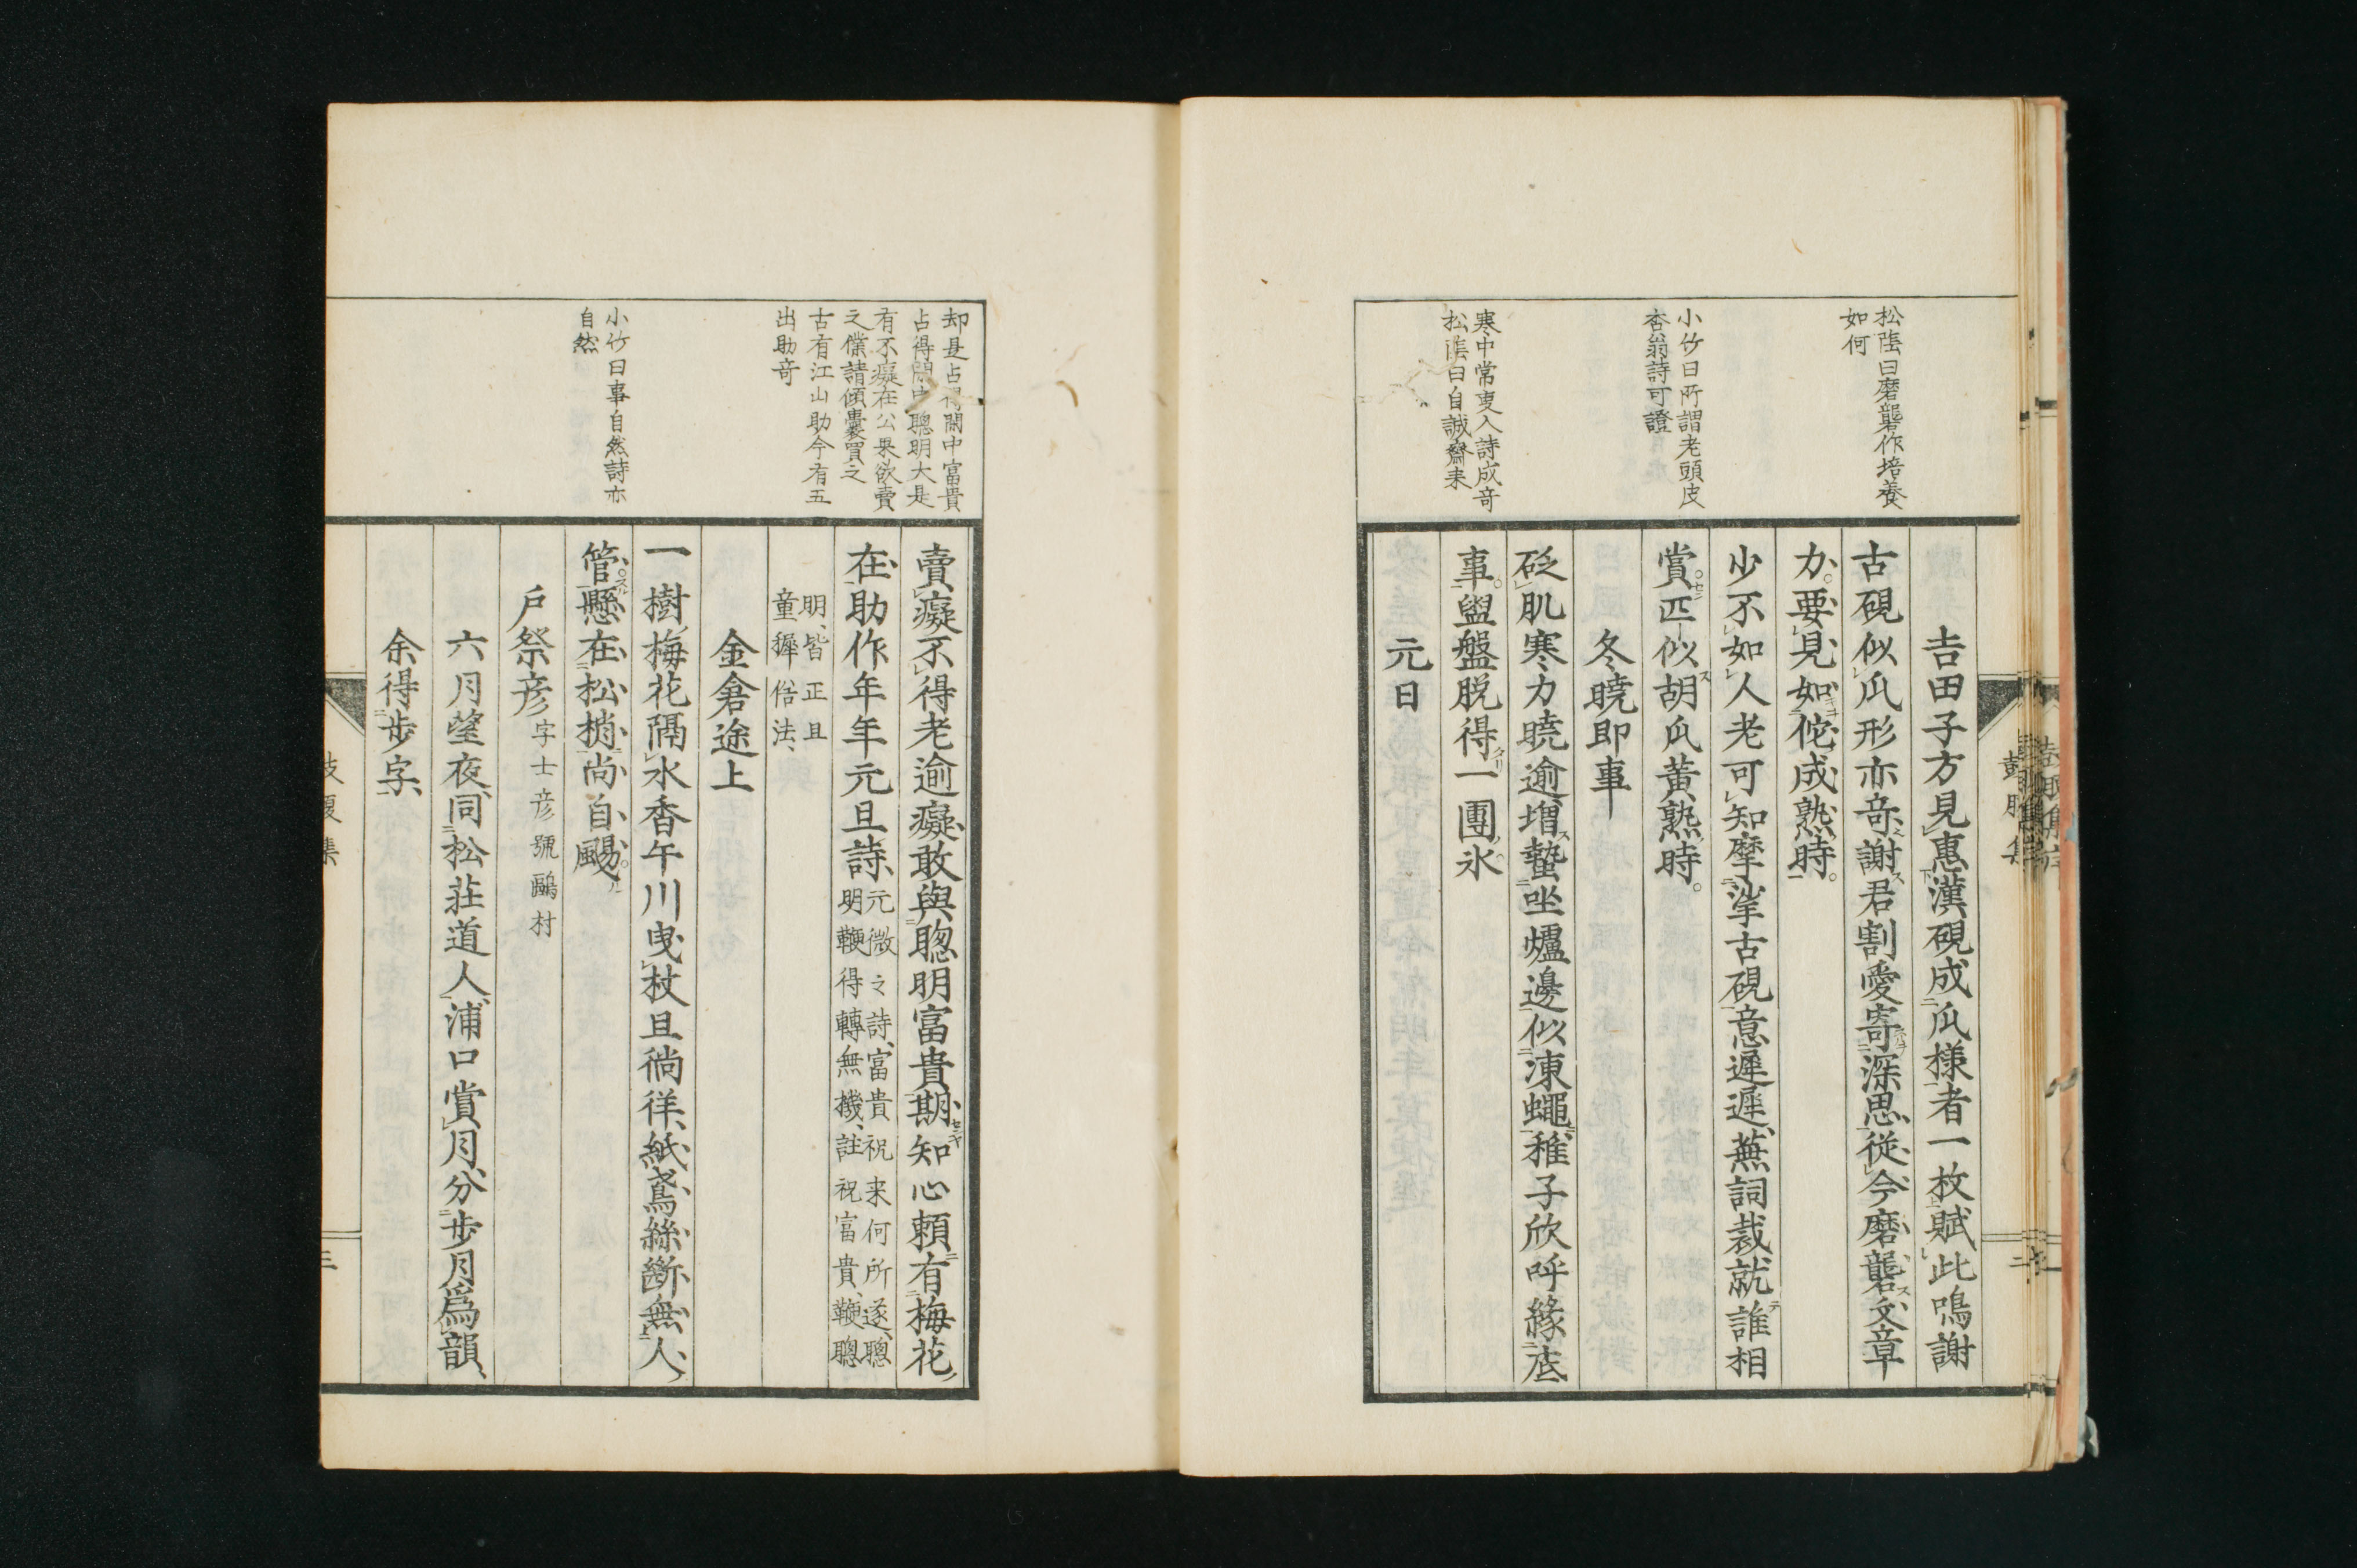 松陰曰磨礱作培養
如何
小竹曰所謂老頭皮
杏翁詩可證
寒中常叓入詩成竒
松陰曰自誠齋来
吉田子方見惠漢硯成瓜樣者一枚賦此鳴謝
古硯似瓜形亦竒謝君割愛寄深思從今磨礱文章
力要見如佗成熟時
少不如人老可知摩挲古硯意遲遲蕪詞裁就誰相
賞匹似胡瓜黃熟時
冬曉即事
砭肌寒力曉逾增蟄坐爐邊似凍蠅稚子欣呼緣底
事盥盤脫得一團氷
元日
却是占得閒中富貴
占得閒中聰明大是
有不癡在公果欲賣
之僕請傾囊買之
古有江山助今有五
出助竒
小竹曰事自然詩亦
自然
賣癡不得老逾癡敢與聰明富貴期知心賴有梅花
在助作年年元旦詩元微之詩富貴祝来何所遂聰
明鞭得轉無機註祝富貴鞭聰
明皆正旦
童穉俗法
金倉途上
一樹梅花隔水香午川曳杖且徜徉紙鳶絲斷無人
管懸在松梢尚自颺
戶祭彦字士彦號鷗村
六月望夜同松莊道人浦口賞月分步月爲韻
余得步字
三